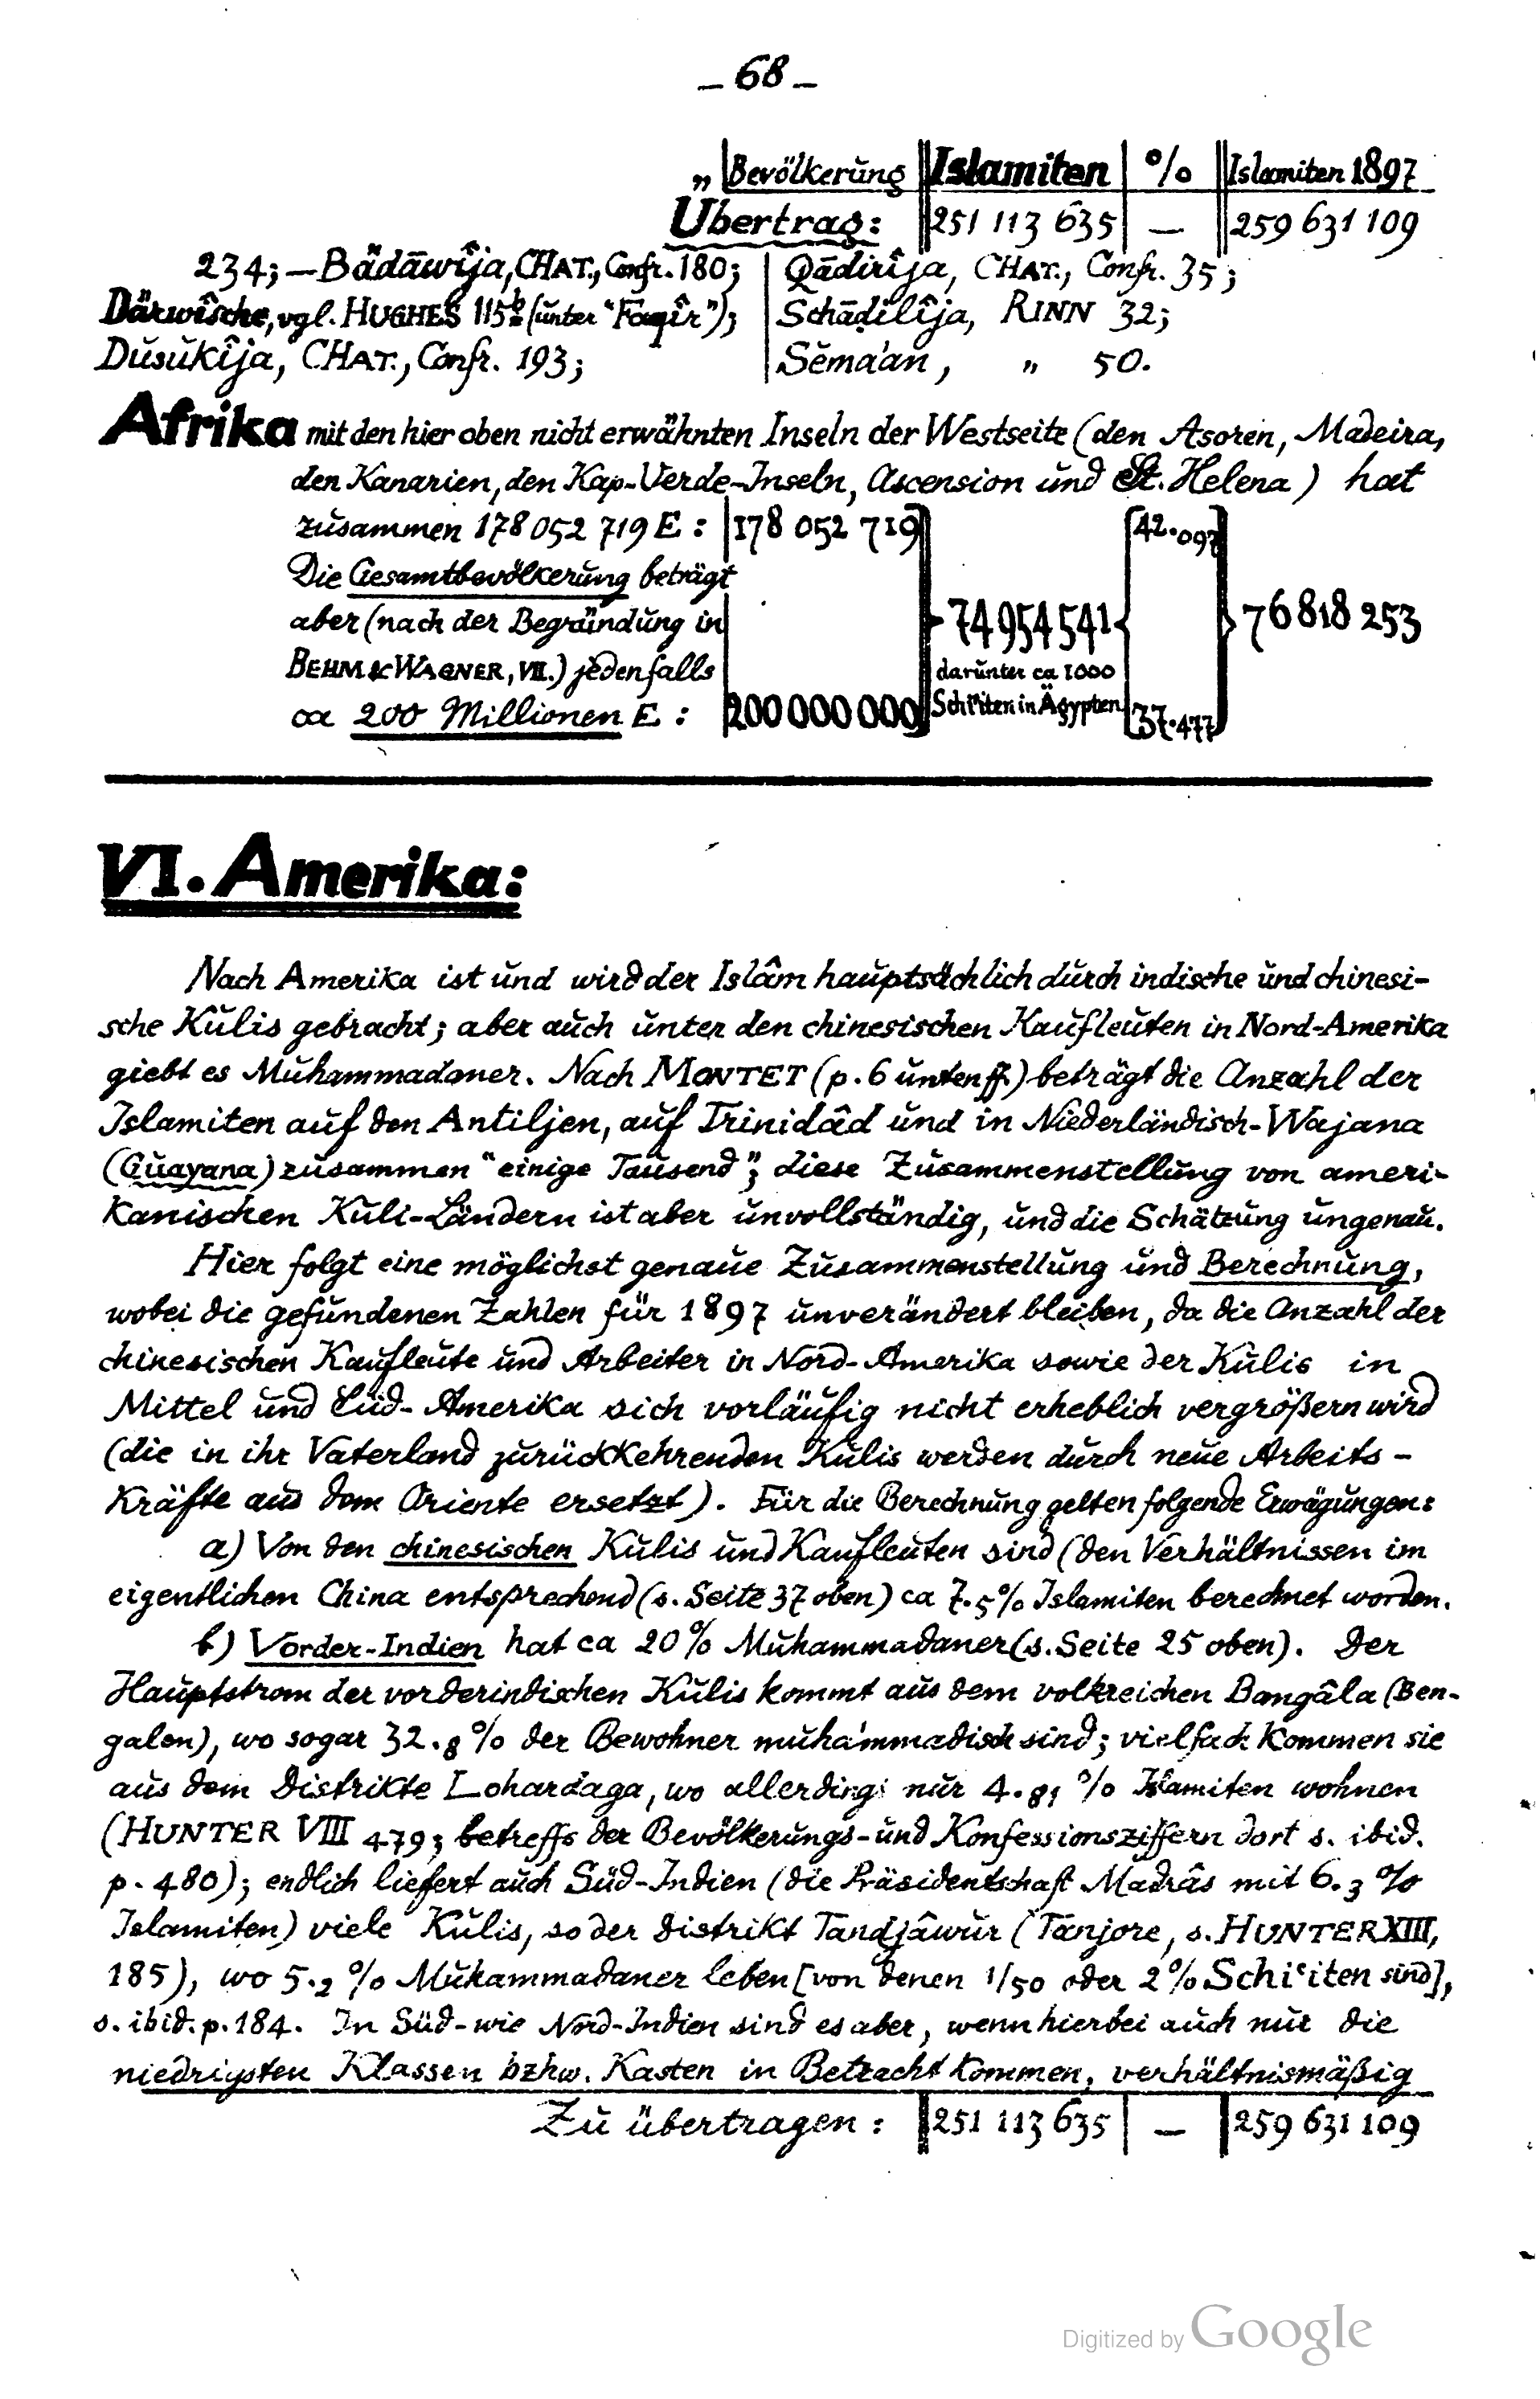 – 68 –
„ Bevölkerung Islamiten % Islamiten 1897
Übertrag: 251 113 635 — 259 631 109
234; — Bädäwîja, CHAT., Confr. 180; Qādirîja, CHAT., Confr. 35;
Därwîsche, vgl. HUGHES 115b (unter "Faqîr"); Schādilîja, RINN 32;
Dŭsŭkîja, CHAT., Confr. 193; Sĕmaʿan, „ 50.
Afrika mit den hier oben nicht erwähnten Inseln der Westseite (den Asoren, Madeira,
den Kanarien, den Kap-Verde-Inseln, Ascension und St. Helena) hat
zusammen 178 052 719 E: 178 052 719 42.097
Die Gesamtbevölkerung beträgt
aber (nach der Begründung in 74 954 541 76 818 253
BEHM & WAGNER, VII.) jedenfalls darunter ca 1000
ca 200 Millionen E: 200 000 000 Schiʿiten in Ägypten 37.477
VI. Amerika:
Nach Amerika ist und wird der Islâm hauptsächlich durch indische und chinesi-
sche Kulis gebracht; aber auch unter den chinesischen Kaufleuten in Nord-Amerika
giebt es Muhammadaner. Nach MONTET (p. 6 unten ff.) beträgt die Anzahl der
Islamiten auf den Antiljen, auf Trinidâd und in Niederländisch-Wajana
(Guayana) zusammen "einige Tausend"; diese Zusammenstellung von ameri-
kanischen Kuli-Ländern ist aber unvollständig, und die Schätzung ungenau.
Hier folgt eine möglichst genaue Zusammenstellung und Berechnung,
wobei die gefundenen Zahlen für 1897 unverändert bleiben, da die Anzahl der
chinesischen Kaufleute und Arbeiter in Nord-Amerika sowie der Kulis in
Mittel und Süd-Amerika sich vorläufig nicht erheblich vergrößern wird
(die in ihr Vaterland zurückkehrenden Kulis werden durch neue Arbeits-
kräfte aus dem Oriente ersetzt). Für die Berechnung gelten folgende Erwägungen:
a) Von den chinesischen Kulis und Kaufleuten sind (den Verhältnissen im
eigentlichen China entsprechend (s. Seite 37 oben) ca 7.5 % Islamiten berechnet worden.
b) Vorder-Indien hat ca 20 % Muhammadaner (s. Seite 25 oben). Der
Hauptstrom der vorderindischen Kulis kommt aus dem volkreichen Bangâla (Ben-
galen), wo sogar 32.8 % der Bewohner muhammadisch sind; vielfach kommen sie
aus dem Distrikte Lohardaga, wo allerdings nur 4.81 % Islamiten wohnen
(HUNTER VIII 479; betreffs der Bevölkerungs- und Konfessionsziffern dort s. ibid.
p. 480); endlich liefert auch Süd-Indien (die Präsidentschaft Madrâs mit 6.3 %
Islamiten) viele Kulis, so der Distrikt Tandjâwur (Tanjore, s. HUNTER XIII,
185), wo 5.2 % Muhammadaner leben [von denen 1/50 oder 2 % Schiʿiten sind],
s. ibid. p. 184. In Süd- wie Nord-Indien sind es aber, wenn hierbei auch nur die
niedrigsten Klassen bzhw. Kasten in Betracht kommen, verhältnismäßig
Zu übertragen: 251 113 635 — 259 631 109
Digitized by Google